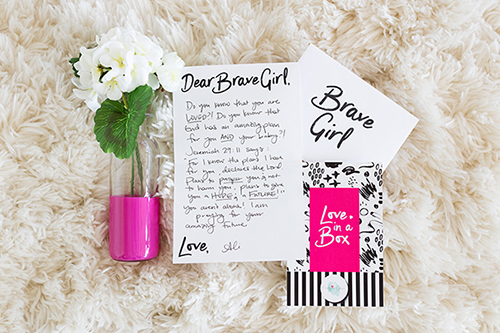 Dear Brave Girl,
Do you know that you are
LOVED?! Do you know that
God has an amazing plan
for you AND your baby?!
Jeremiah 29:11 says:
"For I know the plans I have
for you declares the Lord.
Plans to prosper you & not
to harm you, plans to give
you a HOPE & a FUTURE!"
You aren't alone! I am
praying for your
amazing future
Love,
Ali
Brave
Girl
Love
in a
Box